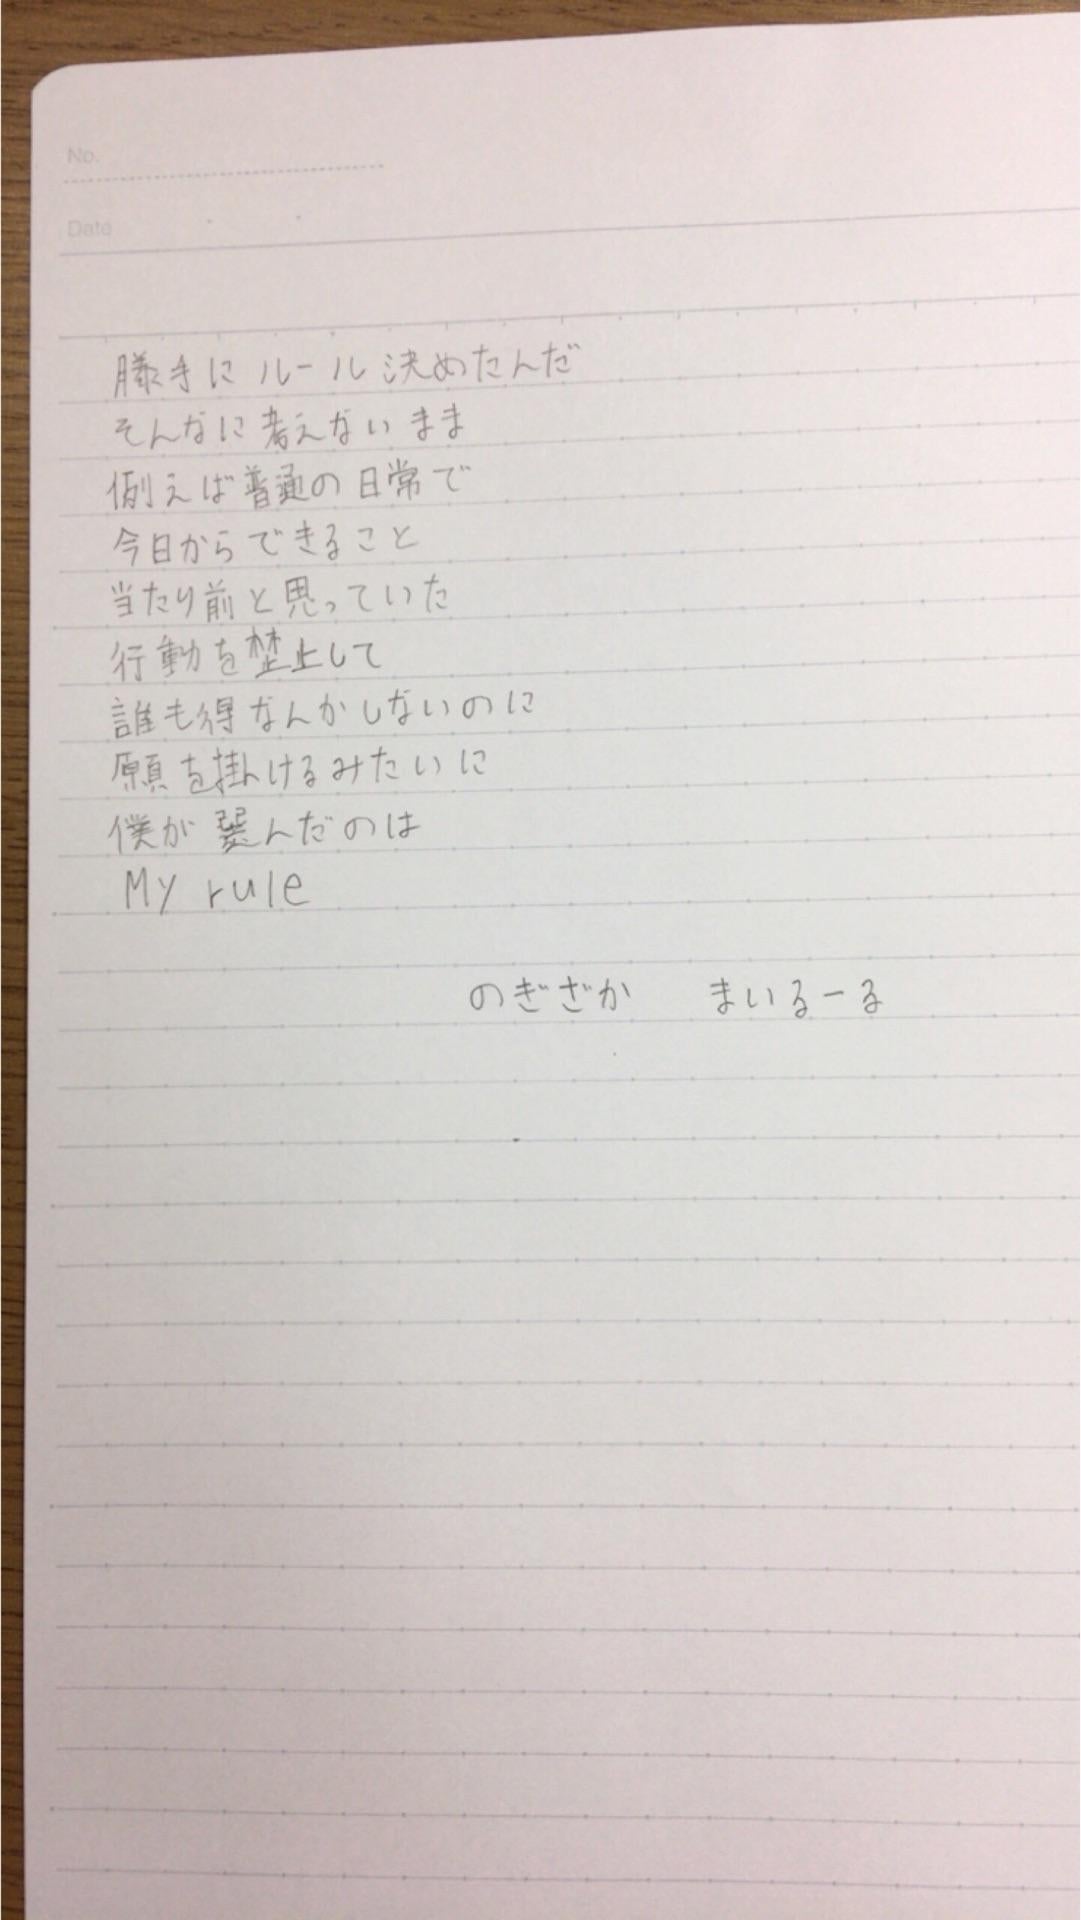 No.
Date
勝手にルール決めたんだ
そんなに考えないまま
例えば普通の日常で
今日からできること
当たり前と思っていた
行動を禁止して
誰も得なんかしないのに
願を掛けるみたいに
僕が選んだのは
My rule
のぎざか まいるーる